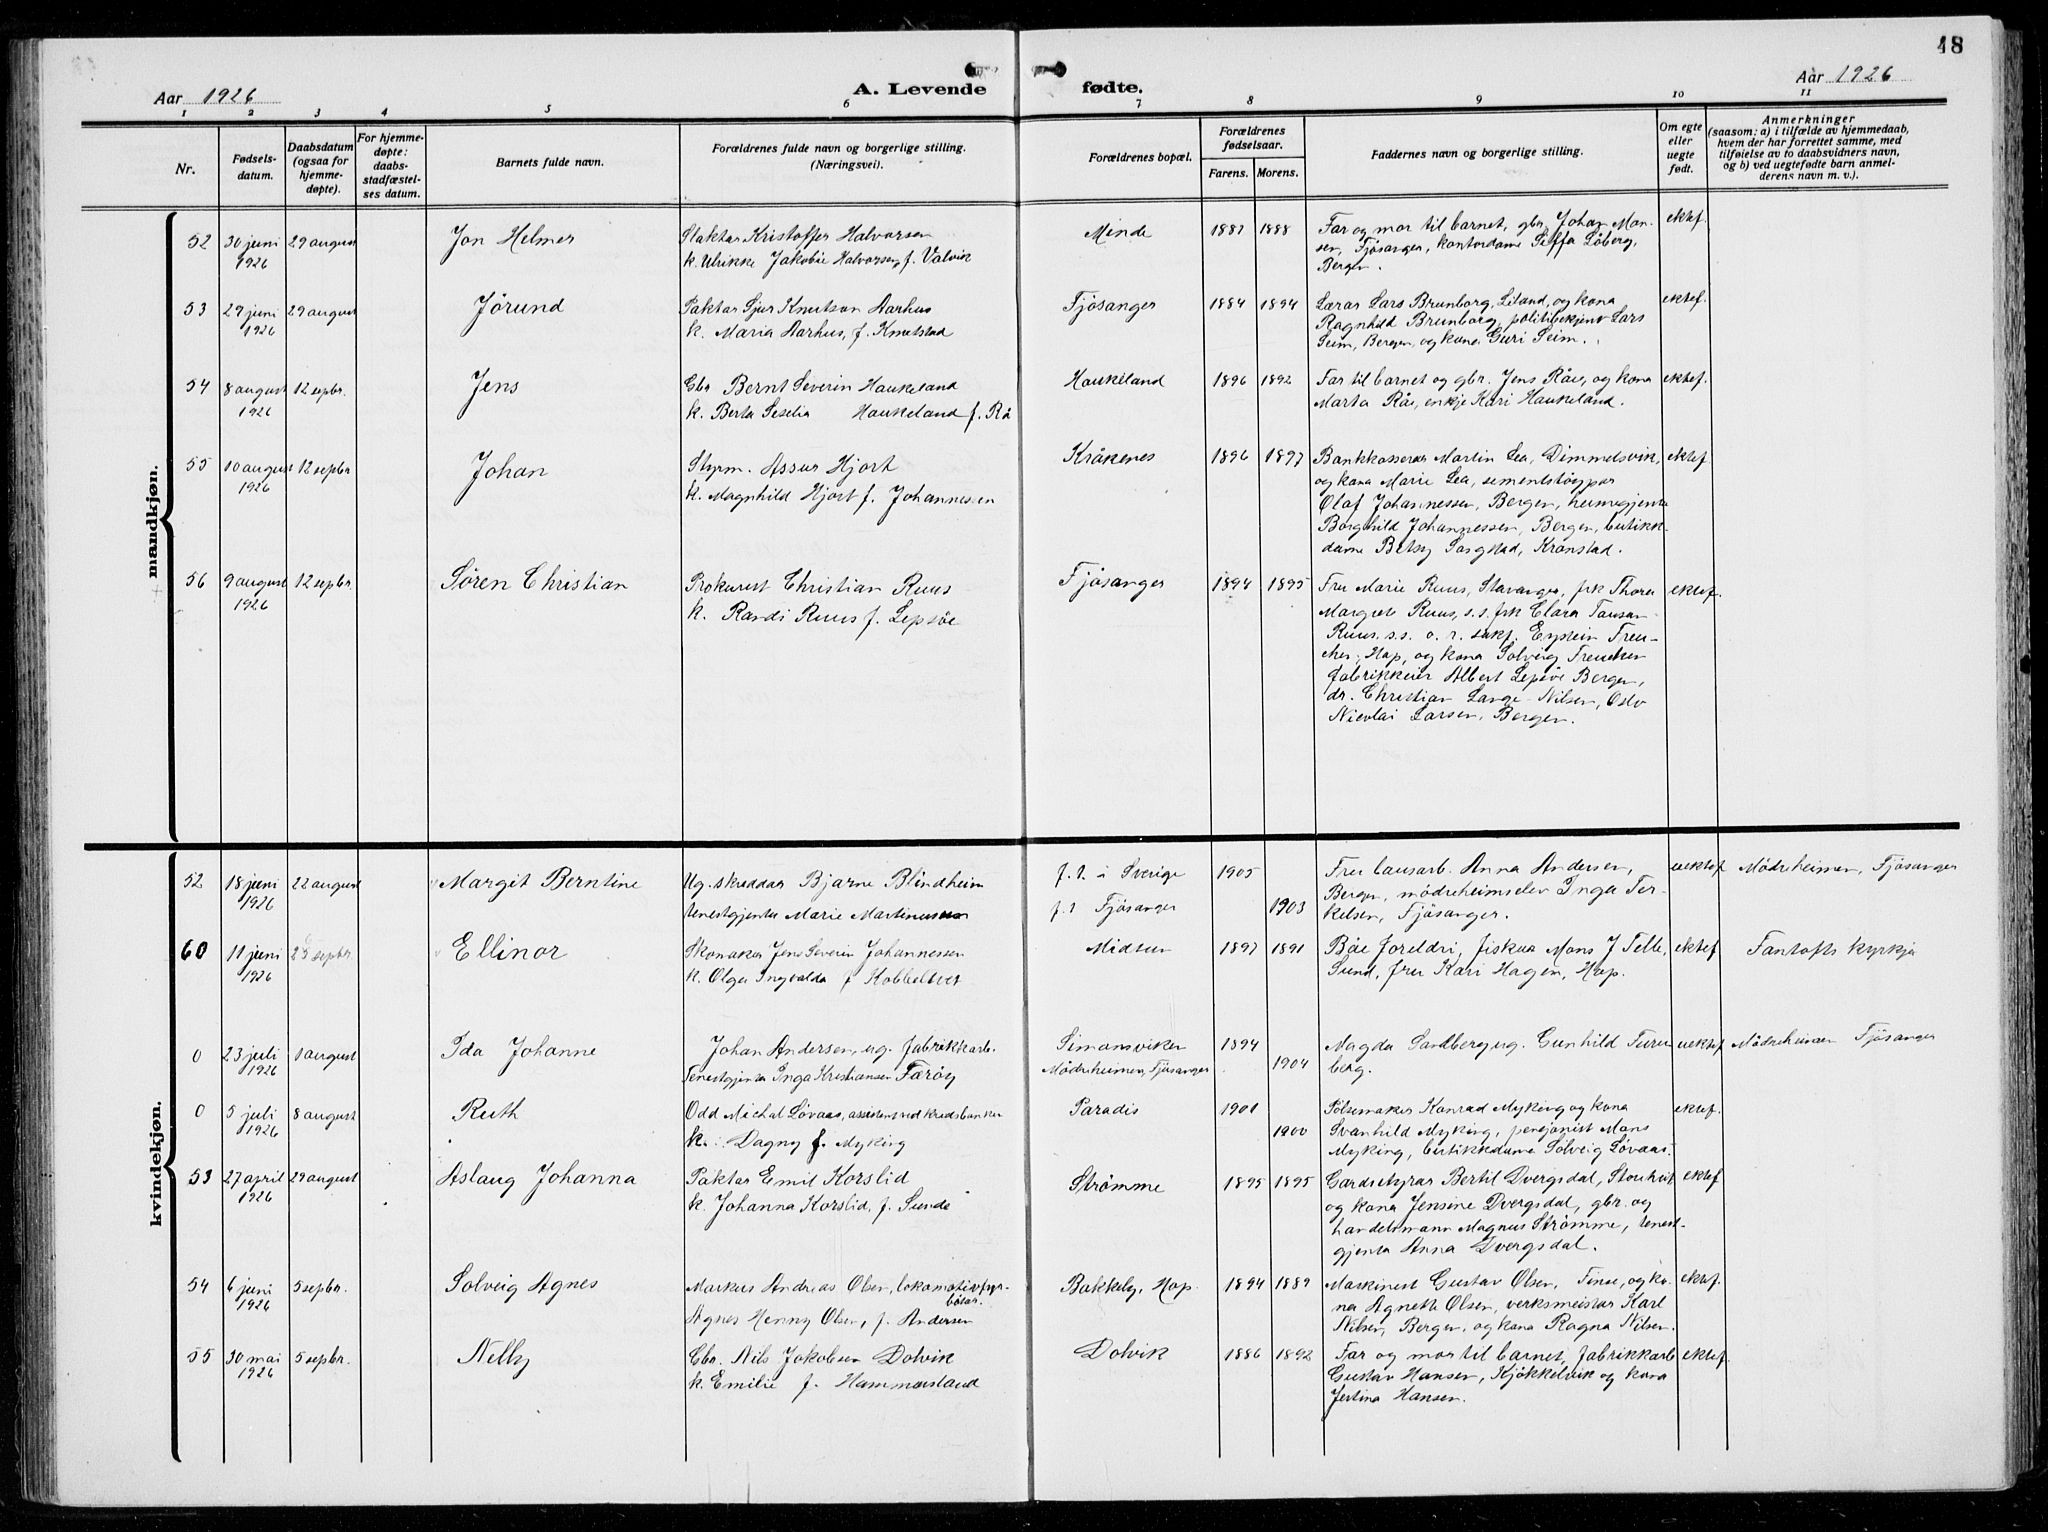 18
Aar 1926
A. Levende fødte.
Aar 1926
1 2 3 4 5 6 7 8 9 10 11
Nr.
Fødsels-
datum.
Daabsdatum
(ogsaa for
hjemme-
døpte).
For hjemme-
døpte:
daabs-
stadfæstel-
ses datum.
Barnets fulde navn.
Forældrenes fulde navn og borgerlige stilling.
(Næringsvei).
Forældrenes bopæl.
Forældrenes
fødselsaar.
Farens. Morens.
Faddernes navn og borgerlige stilling.
Om egte
eller
uegte
født.
Anmerkninger
(saasom: a) i tilfælde av hjemmedaab,
hvem der har forrettet samme, med
tilføielse av to daabsvidners navn,
og b) ved uegtefødte barn anmel-
derens navn m. v.).
mandkjøn.
52 30 juni 1926 29 august Jon Helmer
Slaktar Kristoffer Halvorsen
k. Ulrikke Jakobie Halvorsen, f. Valvik
Minde 1887 1888
Far og mor til barnet, gbr. Johan Mon-
sen, Fjøsanger, kontordame Siffa Løberg,
Bergen.
ektef.
53 29 juni 1926 29 august Jørund
Paktar Sjur Knutson Aarhus
k. Maria Aarhus, f. Knutstad
Fjøsanger 1884 1894
Lærar Lars Brunborg, Liland, og kona
Ragnhild Brunborg, politibetjent Lars
Seim, Bergen, og kona Guri Seim.
ektef.
54 8 august 1926 12 septbr. Jens
Gbr Bernt Severin Haukeland
k. Berta Seselia Haukeland f. Rå
Haukeland 1896 1892
Far til barnet og gbr. Jens Råe, og kona
Marta Råe, enkje Kari Haukeland.
ektef.
55 10 august 1926 12 septbr Johan
Styrm. Assur Hjort
k. Magnhild Hjort f. Johannessen
Kråkenes 1896 1897
Bankkasserar Martin Lea, Dimmelsvik,
og kona Marie Lea, sementstøypar
Olaf Johannessen, Bergen, heimegjenta
Borghild Johannessen, Bergen, butikk-
dame Betsy Sørgstad, Kronstad.
ektef.
56 9 august 1926 12 septbr. Søren Christian
Prokurist Christian Ruus
k. Randi Ruus f. Lepsøe
Fjøsanger 1894 1895
Fru Marie Ruus, Stavanger, frk Thora
Margrete Ruus, s.s. frk Clara Tausan
Ruus, s.s. o. r. sakf. Eystein Treu-
cher, Hop, og kona Solveig Treucher
fabrikkeier Albert Lepsöe Bergen,
dr. Christian Lange-Nilsen, Oslo
Nicolai Larsen, Bergen.
ektef.
kvindekjøn.
52 18 juni 1926 22 august Margit Berntine
Ug. skreddar Bjarne Blindheim
tenestgjenta Marie Martinussen
f. t. i Sverige 1905
f. t. Fjøsanger 1903
Fru lausarb. Anna Andersen,
Bergen, mödreheimselev Inga Ter-
kelsen, Fjøsanger.
uektef. Mödreheimen, Fjøsanger
60 11 juni 1926 septbr. Ellinor
Skomakar Jens Severin Johannessen
k. Olga Ingvalda f Kobbeltvet
Midtun 1897 1891
Båe foreldri, fiskar Mons J Telle,
Sund, fru Kari Hagen, Hop.
ektef. Fantofts kyrkja
0 23 juli 1926 1 august Ida Johanne
Johan Andersen, ug. fabrikkarb.
Tenestgjenta Inga Kristiansen Færöy
Simonsviken 1894
Mödreheimen, Fjøsanger 1904
Magda Sandberg ug. Gunhild Furu-
berg.
uektef. Mödreheimen Fjøsanger
0 5 juli 1926 8 august Ruth
Odd Michal Løvaas, assistent ved kredsbanken
k. Dagny f. Myking
Paradis 1901
1900
Pølsemaker Konrad Myking og kona
Svanhild Myking, pensjonist Mons
Myking, butikkdame Solveig Løvaas.
ektef.
53 27 april 1926 29 august Aslaug Johanna
Paktar Emil Korslid
k. Johanna Korslid, f. Sunde
Strømme 1895 1895
Gardstyrar Bertil Dvergsdal, Storetveit
og kona Jensine Dvergsdal, gbr. og
handelsmann Magnus Strømme, tenest-
gjenta Anna Dvergsdal.
ektef
54 6 juni 1926 5 septbr. Solveig Agnes
Markus Andreas Olsen, lokomotivfyr-
bötar.
Agnes Henny Olsen, f. Andersen
Bakkely, Hop. 1894 1889
Maskinist Gustav Olsen, Finse, og ko-
na Agnethe Olsen, verksmeistar Karl
Nilsen, Bergen, og kona Ragna Nilsen.
ektef.
55 30 mai 1926 5 septbr. Nelly
Gbr. Nils Jakobsen Dolvik
k. Emilie f. Hammersland
Dolvik 1886 1892
Far og mor til barnet, fabrikkarb
Gustav Hansen, Kjøkkelvik og kona
Jertina Hansen.
ektef.